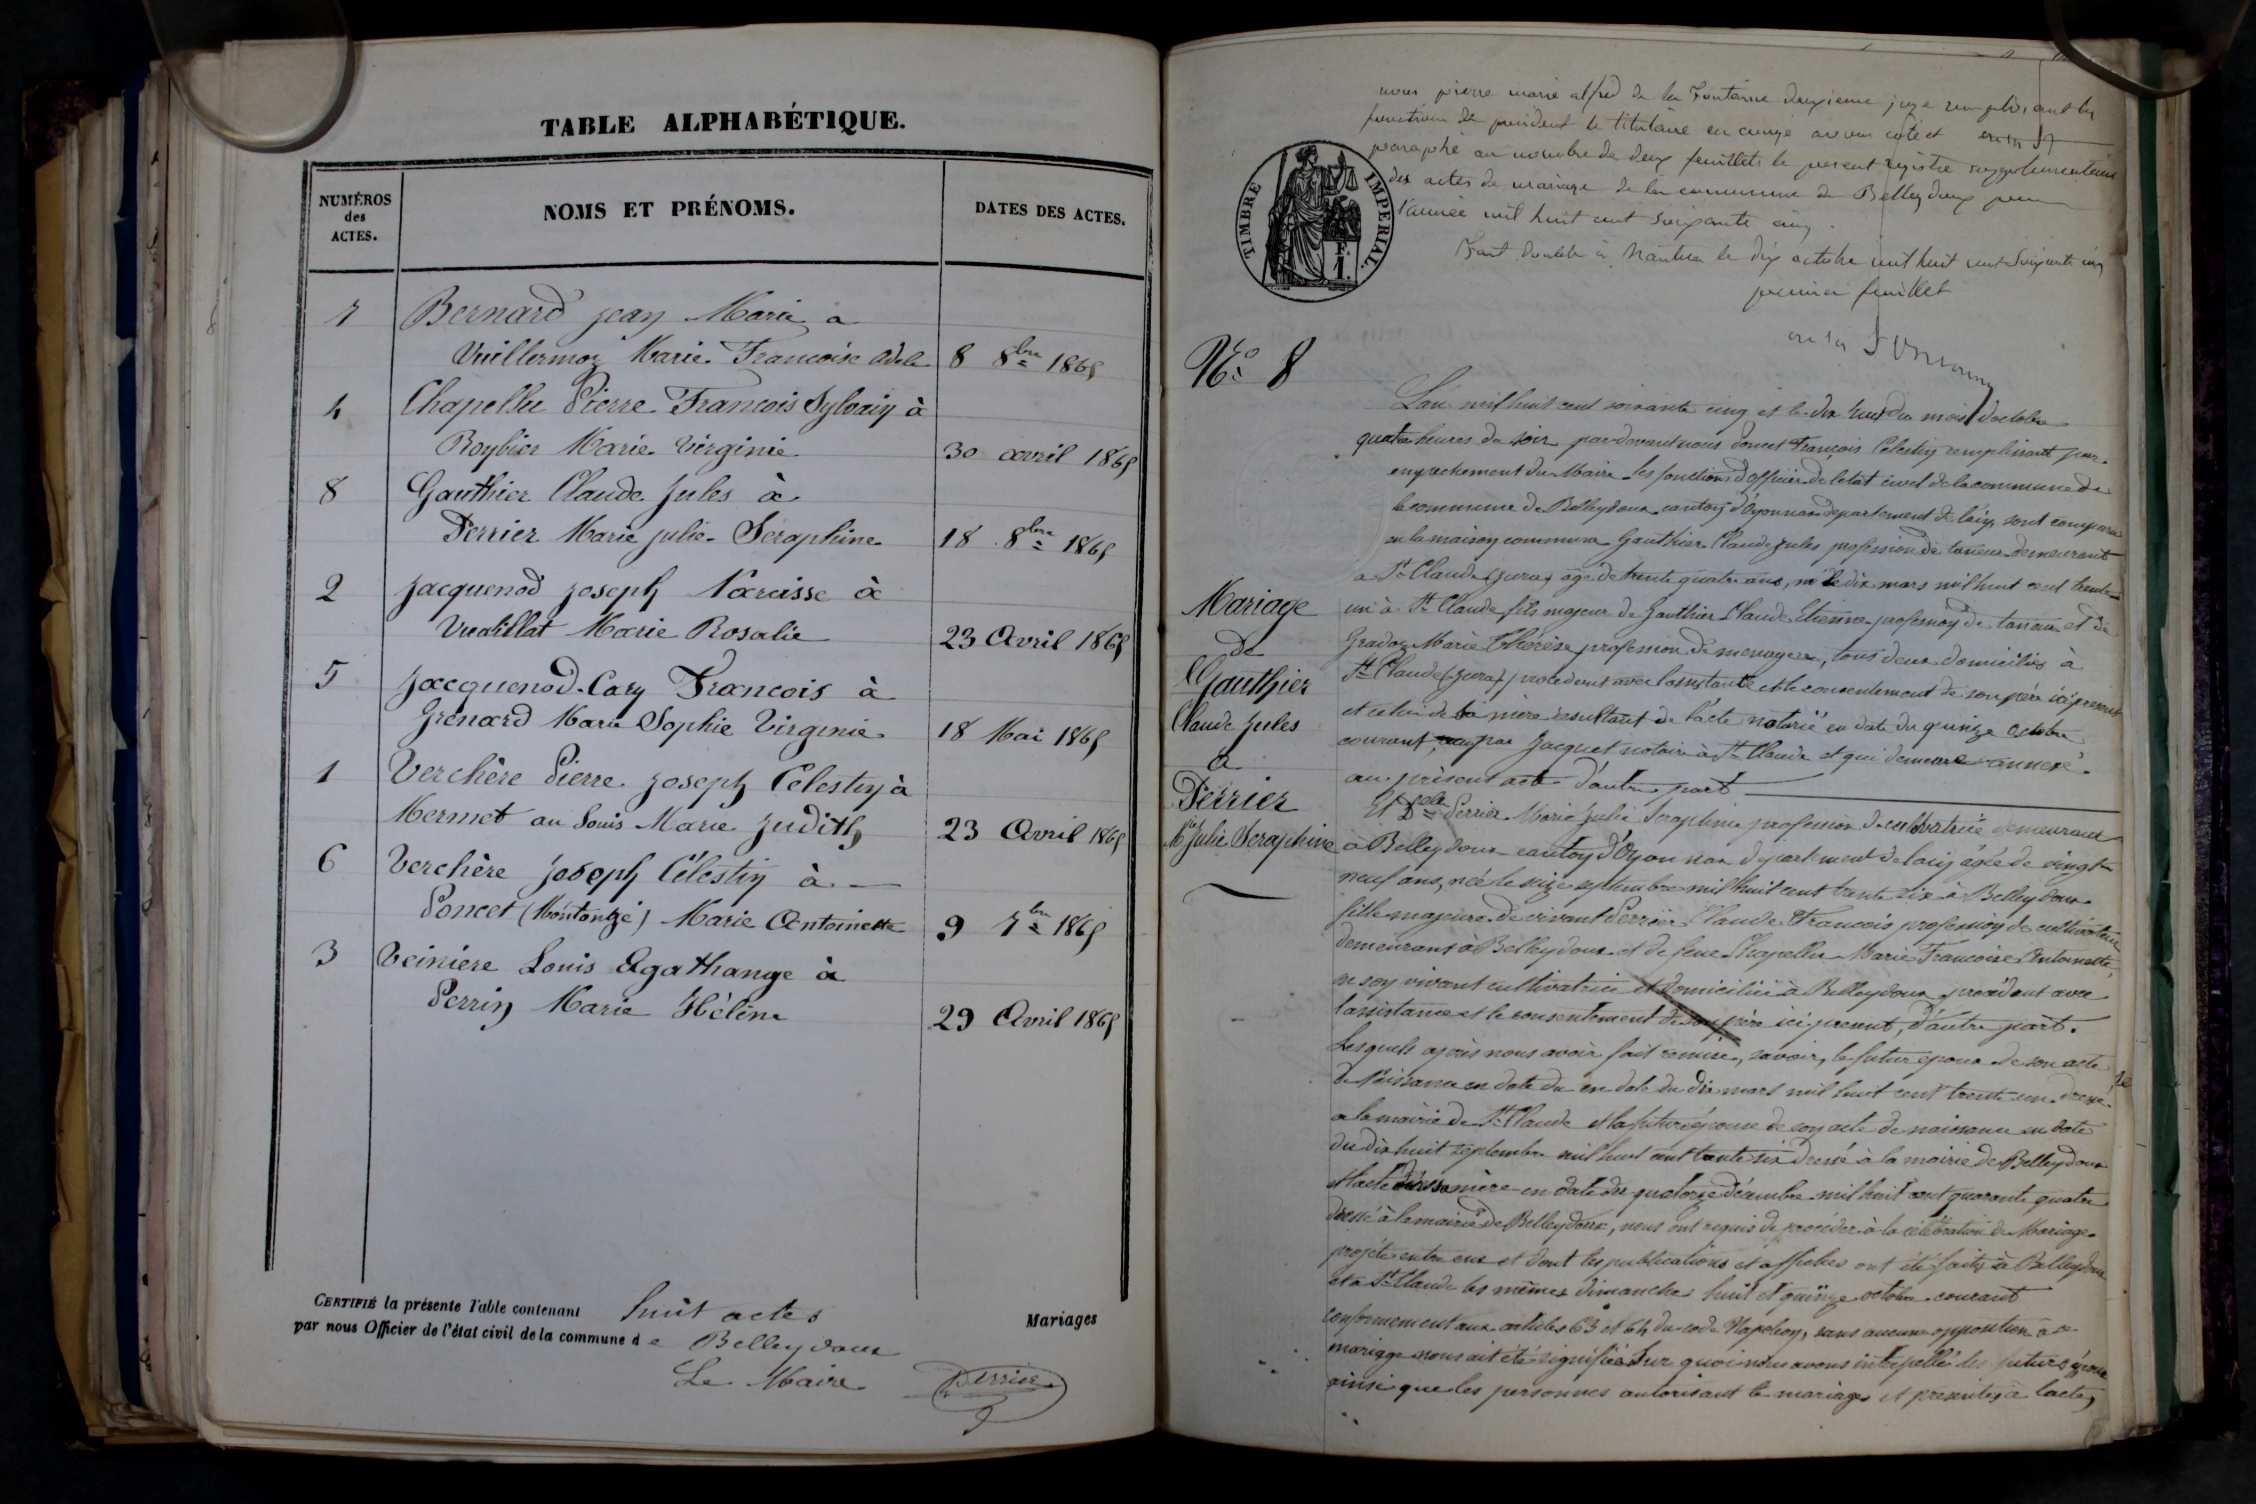 TABLE ALPHABÉTIQUE.
NUMÉROS
des
ACTES.
NOMS ET PRÉNOMS.
DATES DES ACTES.
7 Bernard jean Marie a
Vuillermoz Marie Francoise Adele 8 8bre 1865
4 Chapellu Pierre Francois Sylvain à
Roybier Marie Virginie 30 avril 1865
8 Gauthier Claude Jules à
Perrier Marie julie Seraphine 18 8bre 1865
2 Jacquenod joseph Narcisse à
Vuaillat Marie Rosalie 23 Avril 1865
5 Jacquenod-Cary Francois à
Grenard Marie Sophie Virginie 18 Mai 1865
1 Verchère Pierre joseph Celestin à
Mermet au Louis Marie Judith 23 Avril 1865
6 Verchère Joseph Célestin à —
Poncet (Montange) Marie Antoinette 9 7bre 1865
3 Veiniere Louis Agathange à
Perrin Marie Hélène 29 Avril 1865
CERTIFIÉ la présente Table contenant huit actes Mariages
par nous Officier de l'état civil de la commune de Belleydoux
Le Maire Perrier
nous pierre marie alfred de la Fontaine deuxieme juge remplissant les
fonctions de president le titulaire en congé avons coté et
paraphé au nombre de deux feuillets le present registre supplementaire
des actes de mariage de la commune de Belleydoux pour
l'année mil huit cent soixante cinq.
Fait double à Nantua le dix octobre mil huit cent soixante cinq
premier feuillet
TIMBRE IMPERIAL.
F.
1.
No. 8
Mariage
de
Gauthier
Claude Jules
à
Perrier
Mie Julie Seraphine
L'an mil huit cent soixante cinq et le dix huit du mois d'octobre
quatre heures du soir par devant nous Poncet François Celestin remplissant par
empechement du Maire les fonctions d'officier de l'etat civil de la commune de
la commune de Belleydoux canton d'Oyonnax departement de l'ain, sont comparus
en la maison commune Gauthier Claude Jules profession de tanneur demeurant
a St Claude (jura) age de trente quatre ans, né le dix mars mil huit cent trente
un à St Claude fils majeur de Gauthier Claude Etienne profession de tanneur et de
Marie Thérèse profession de menagere, tous deux domiciliés à
St Claude (jura) procedant avec l'assistance et le consentement de son père ici présent
et celui de sa mère résultant de l'acte notarié en date du quinze octobre
courant, par Jacquet notaire à St Claude et qui demeure annexé
au présent acte d'autre part
Et Delle Perrier Marie Julie Seraphine profession de cultivatrice demeurant
à Belleydoux canton d'Oyonnax departement de l'ain âgée de vingt
neuf ans, née le seize septembre mil huit cent trente six à Belleydoux
fille majeure de vivant Perrier Claude Francois profession de cultivateur
demeurant à Belleydoux et de feue Chapellu Marie Francoise Antoinette,
en son vivant cultivatrice et domiciliée à Belleydoux procédant avec
l'assistance et le consentement de son père ici present, d'autre part.
Lesquels après nous avoir fait remise, savoir, le futur epoux de son acte
de Naissance en date du en date du dix mars mil huit cent trente un dressé
a la mairie de St Claude et la future épouse de son acte de naissance en date
du dix huit septembre mil huit cent trente six dressé à la mairie de Belleydoux
et l'acte mère en date du quatorze décembre mil huit cent quarante quatre
dressé à la mairie de Belleydoux, nous ont requis de procéder à la célébration du Mariage
projeté entre eux et dont les publications et affiches ont été faites à Belleydoux
et à St Claude les mêmes dimanches huit et quinze octobre courant
conformement aux articles 63 et 64 du code Napoléon, sans aucune opposition à ce
mariage nous ait été signifiée. Sur quoi nous avons interpellé les futurs époux
ainsi que les personnes autorisant le mariage et présentes à l'acte,